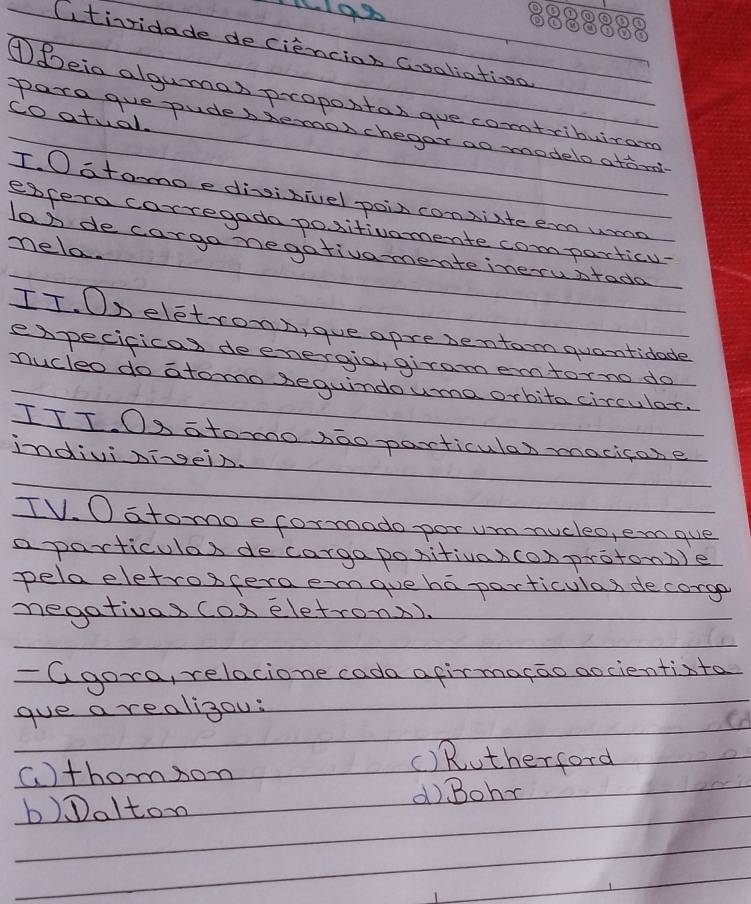 Atividade de Ciências Avaliativa
① Leia algumas propostas que comtribuiram
para que pudessemos chegar ao modelo atômi-
co atual.
I. O átomo e divisível pois consiste em uma
esfera carregada positivamente com particu-
las de carga negativamente inerustada
nela.
II. Os elétrons, que apresentam quantidade
especificas de energia, giram em torno do
nucleo do átomo seguindo uma orbita circular.
III. Os átomo são particulas maciças e
indivisíveis.
IV. O átomo e formado por um nucleo, em que
a particulas de carga positivas (os prótons) e
pela eletrosfera em que há particulas de carga
negativas (os életrons).
- Agora, relacione cada afirmação ao cientista
que a realizou:
a) thomson
b) Dalton
c) Rutherford
d) Bohr